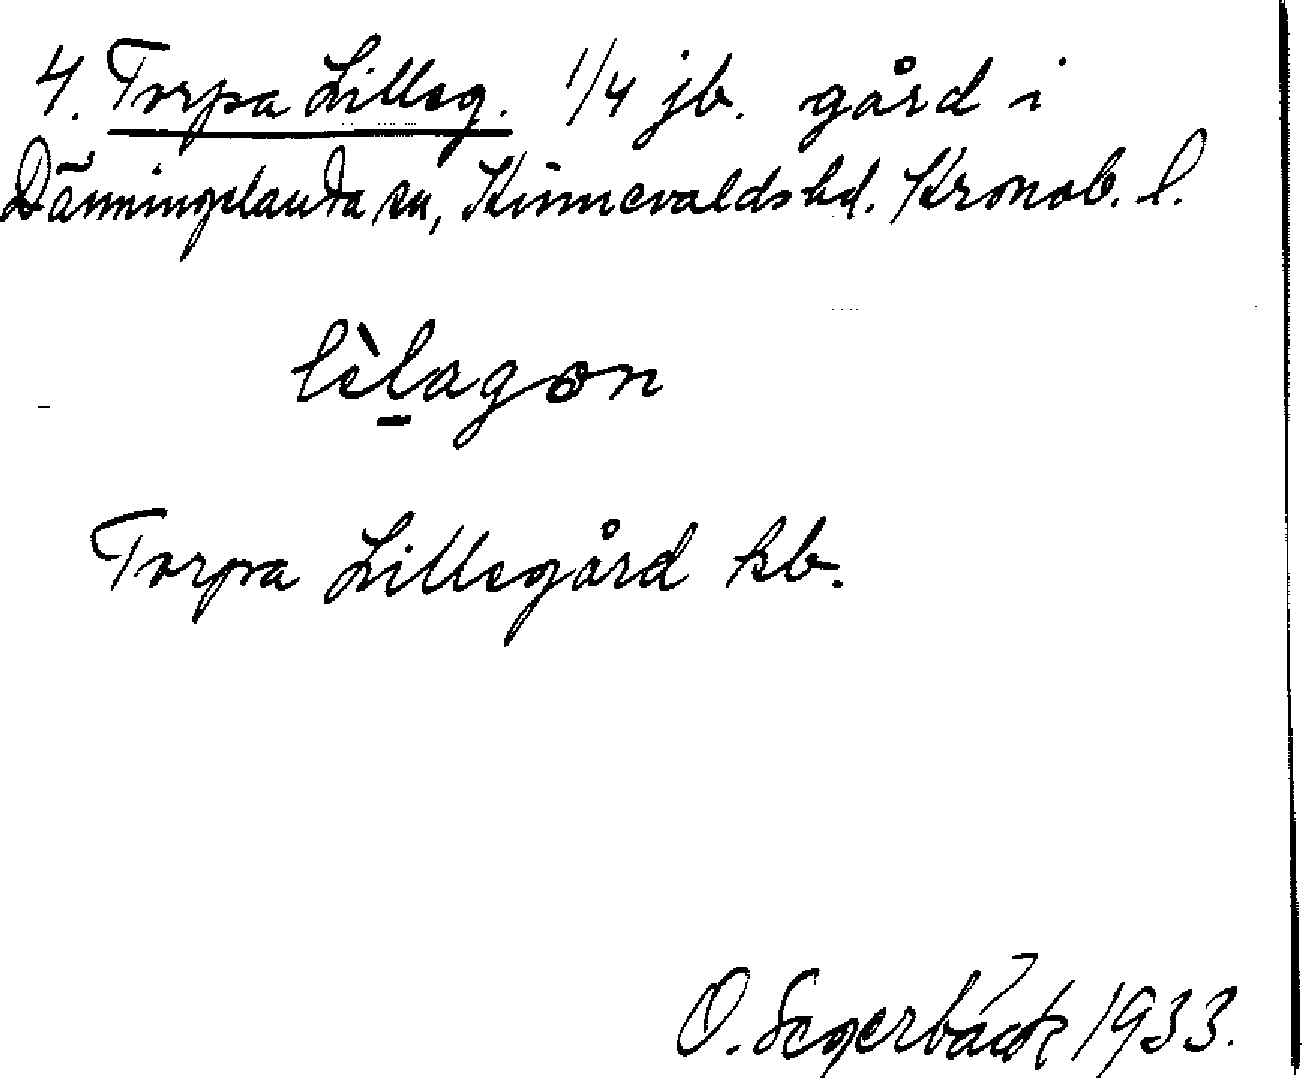 4. Torpa Lilleg. 1/4 jb. gård i
Dänningelanda sn, Kinnevalds hd. Kronob. l.
lèlagon
Torpa Lillegård kb.
O. Segerbäck 1933.